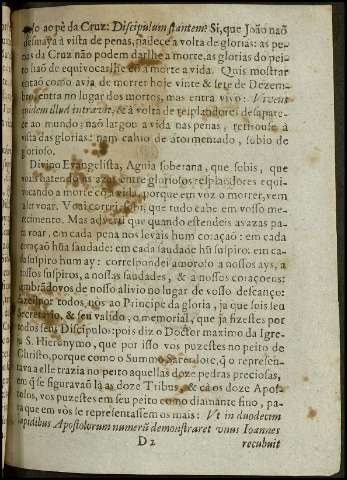 ao pè da Cruz: Discipulum stantem? Si, que João naõ
desmaya à vista de penas, padece a volta de glorias: as pe-
nas da Cruz não podem darlhe a morte, as glorias do pei-
to haõ de equivocarlhe cõ a morte a vida. Quis mostrar
entaõ como avia de morrer hoje vinte & sete de Dezem-
bro, entra no lugar dos mortos, mas entra vivo: Vivens
quidem illud intravit, & à volta de resplandores desapare-
ce ao mundo: naõ largou a vida nas penas, retirouse à
vista das glorias: nam cahio de atormentado, subio de
glorioso.
Divino Evangelista, Aguia soberana, que sobis, que
voais batendo as azas entre gloriosos resplandores equi-
vocando a morte com a vida, porque em vòs o morrer, vem
a ser voar. Voai correi, sobi, que tudo cabe em vosso me-
recimento. Mas adverti que quando estendeis as azas pa-
ra voar, em cada pena nos levais hum coraçaõ: em cada
coraçaõ hũa saudade: em cada saudade hũ suspiro: em ca-
da suspiro hum ay: correspondei amoroso a nossos ays, a
nossos suspiros, a nossas saudades, & a nossos coraçoens:
lembrãdovos de nosso alivio no lugar de vosso descanço:
fazei por todos nòs ao Principe da gloria, ja que sois seu
Secretario, & seu valido, o memorial, que ja fizestes por
todos seus Discipulos: pois diz o Doctor maximo da Igre-
ja S. Hieronymo, que por isso vos puzestes no peito de
Christo, porque como o Summo Sacerdote, q̃ o represen-
tava a elle trazia no peito aquellas doze pedras preciosas,
em q̃ se figuravaõ là as doze Tribus, & cà os doze Apos-
tolos, vos puzestes em seu peito como diamante fino, pa-
ra que em vòs se representassem os mais: Vt in duodecim
lapidibus Apostolorum numerũ demonstraret vnus Ioannes
D 2 recubuit